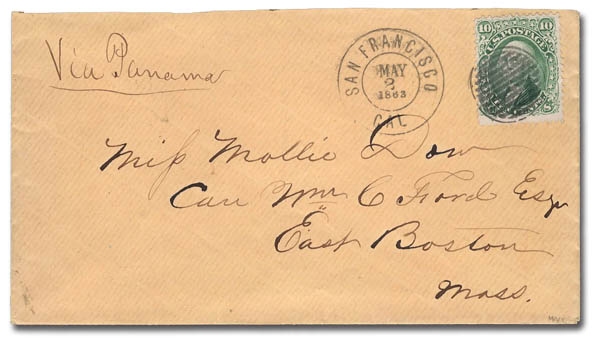 Via Panama
SAN FRANCISCO
MAY
2
1863
CAL
10 U.S. POSTAGE 10
Miss Mollie Dow
Care Wm C Ford Esqr
East Boston
Mass.